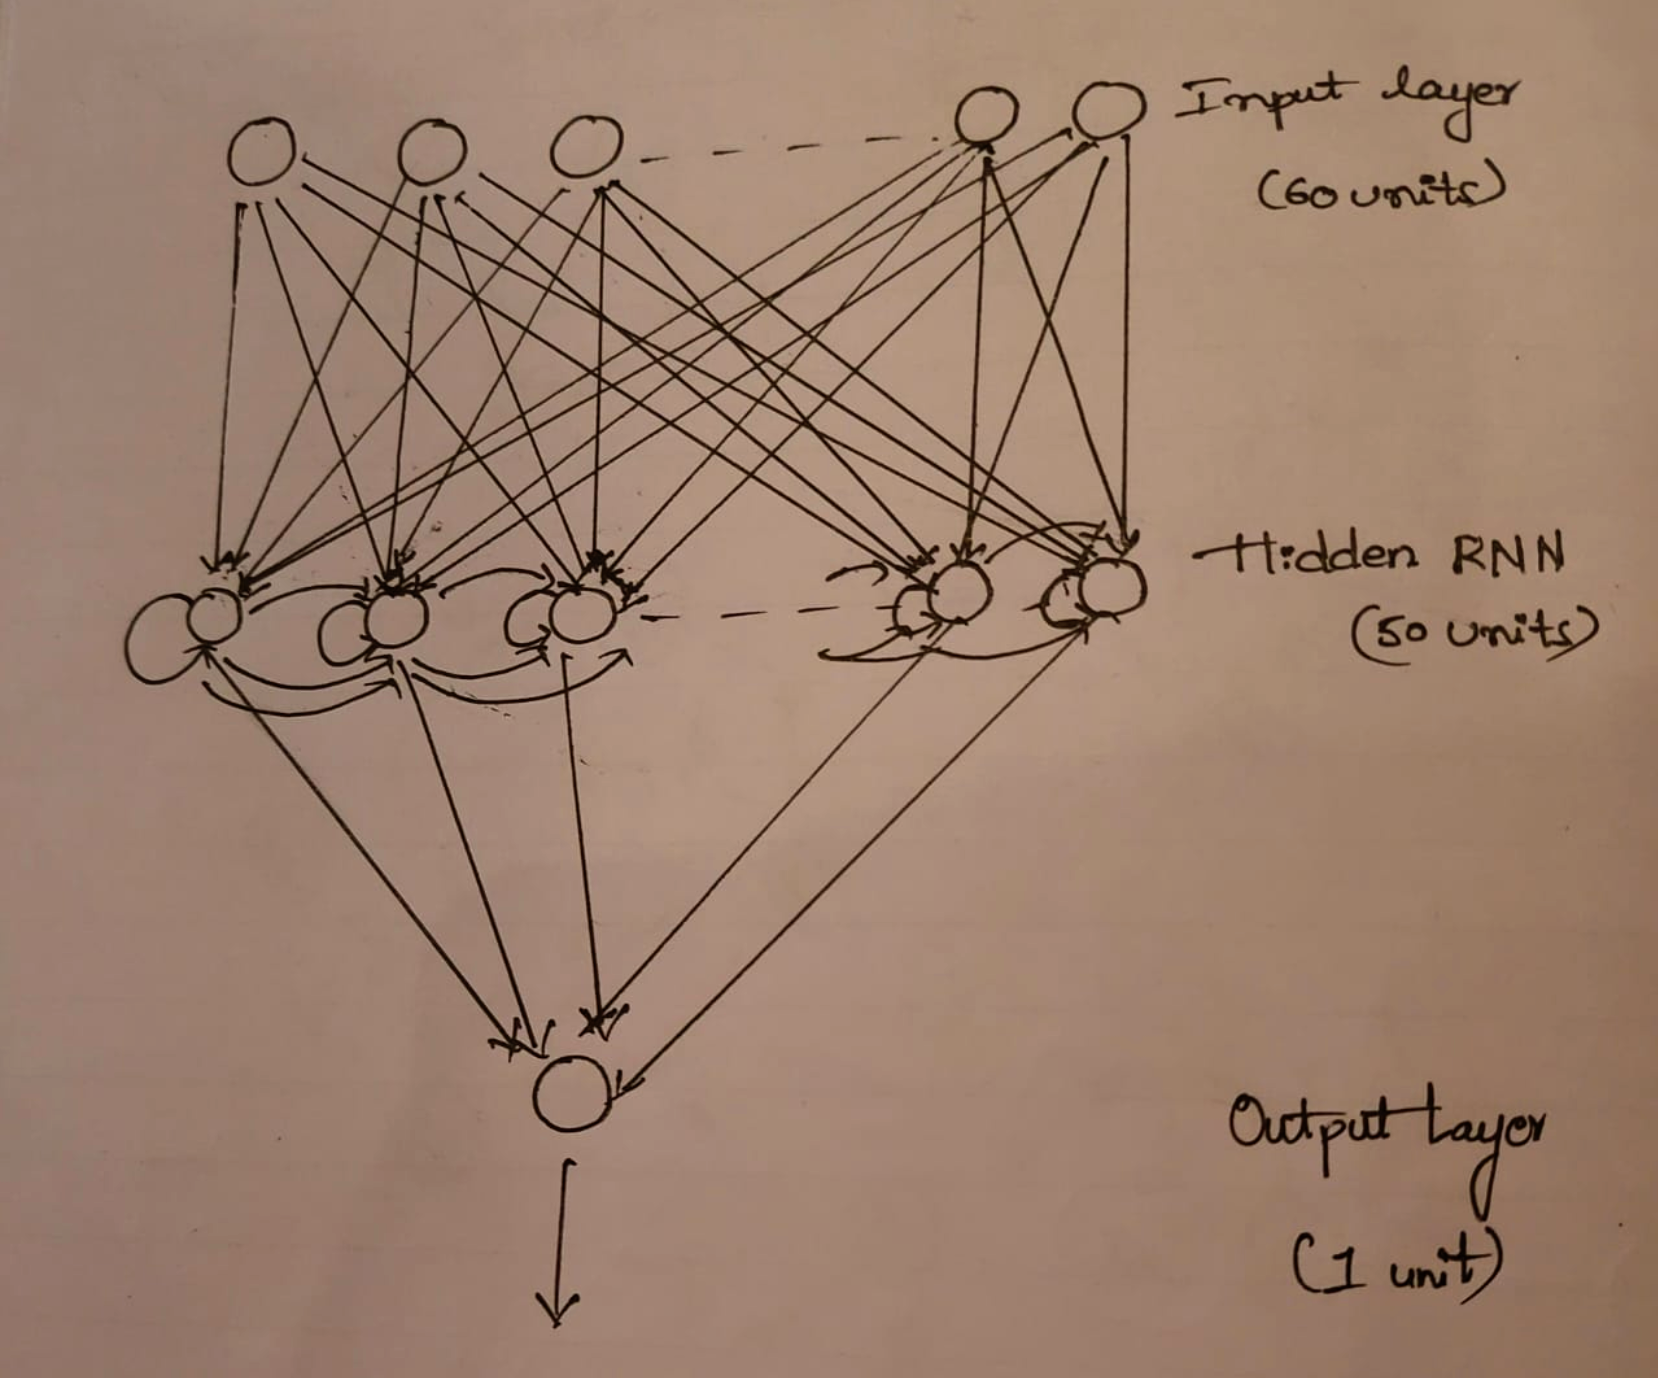 Input layer
(60 units)
Hidden RNN
(50 units)
Output Layer
(1 unit)